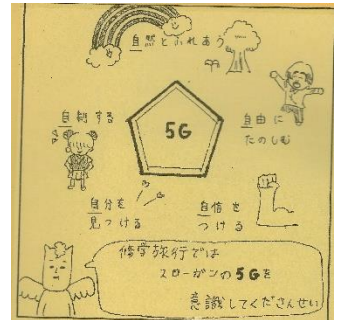 自然とふれあう
5G
自制する
自由に
たのしむ
自分を
見つける
自信を
つける
修学旅行では
スローガンの5Gを
意識してくださんせい